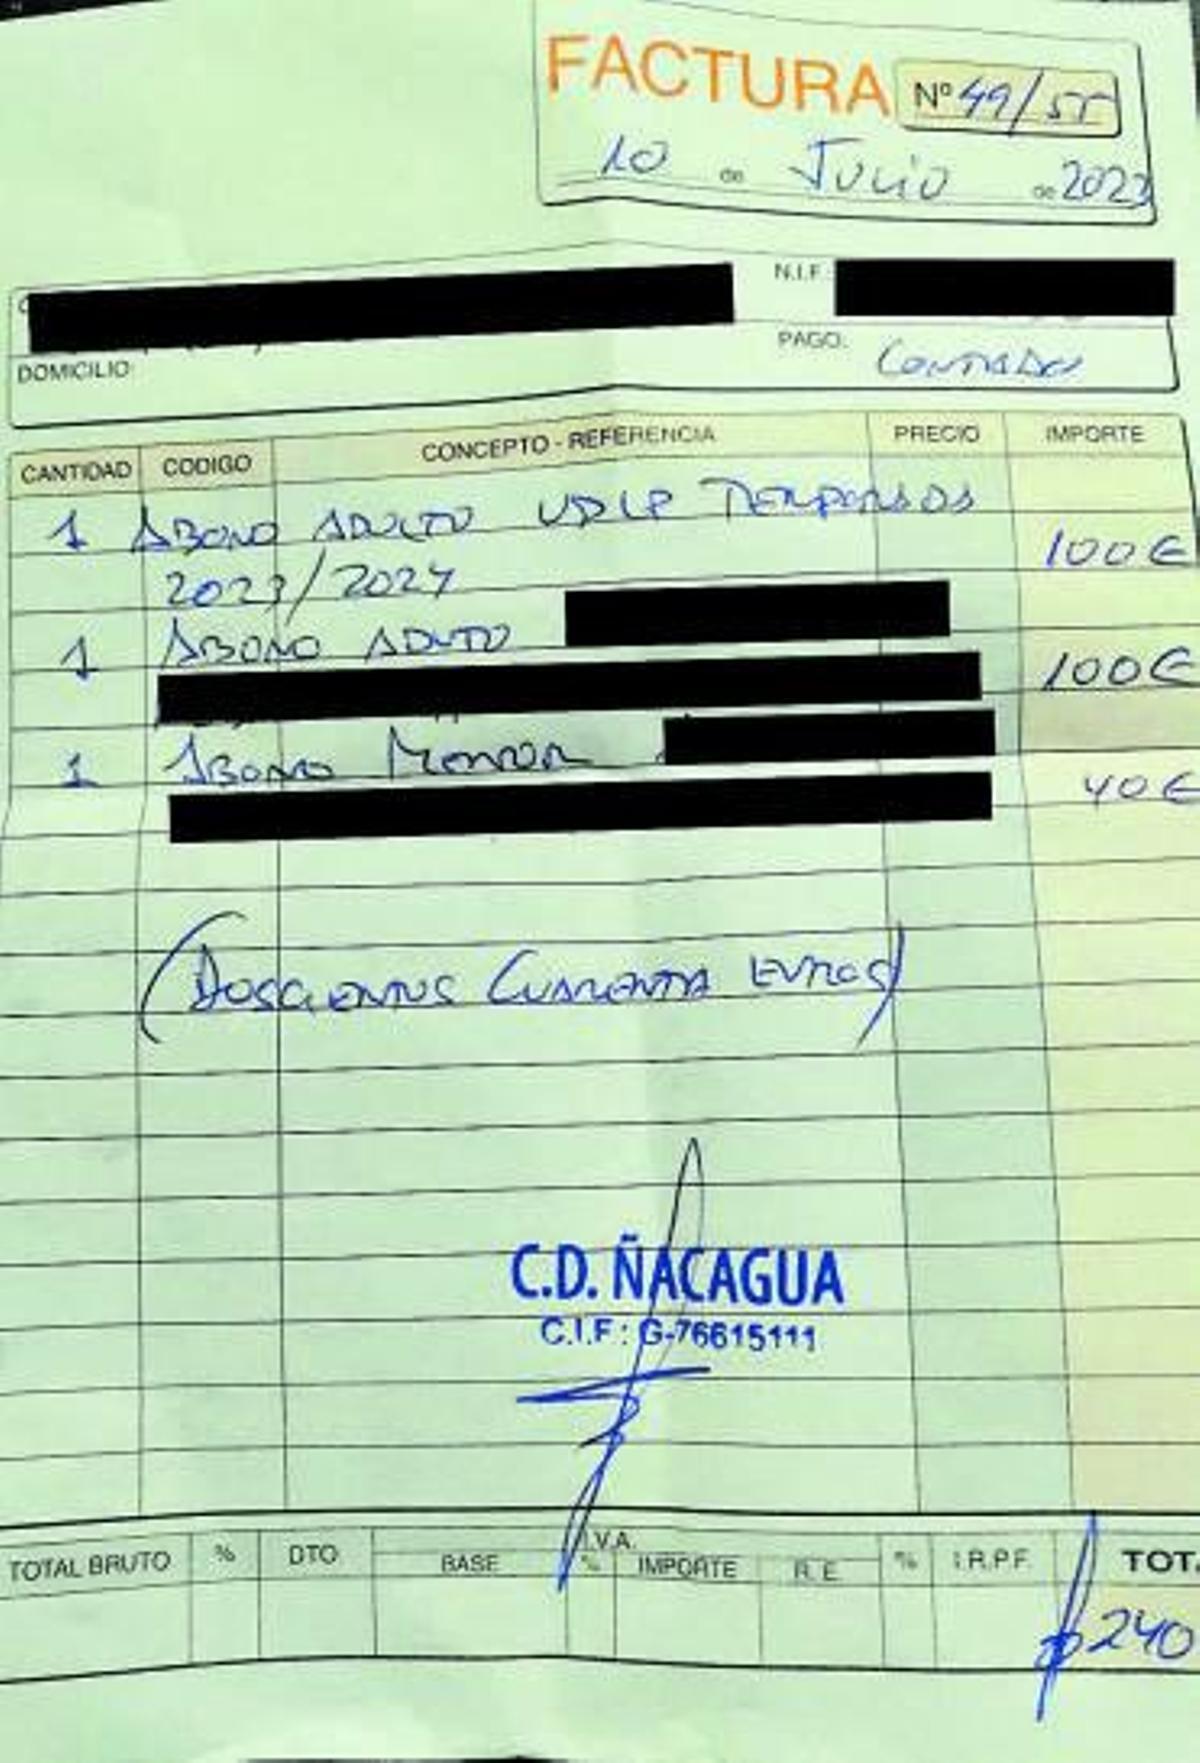 FACTURA Nº 49/55
10 de Julio de 2023
N.I.F.
DOMICILIO: PAGO: CONTADO
CANTIDAD CODIGO CONCEPTO - REFERENCIA PRECIO IMPORTE
1 ABONO ADULTO UDLP TEMPORADA
100€
2023/2024
1 ABONO ADULTO 100€
1 ABONO MENOR
40€
(DOSCIENTOS CUARENTA EUROS)
C.D. ÑACAGUA
C.I.F: G-76615111
I.V.A.
TOTAL BRUTO % DTO BASE % IMPORTE R. E. % I.R.P.F. TOT
240